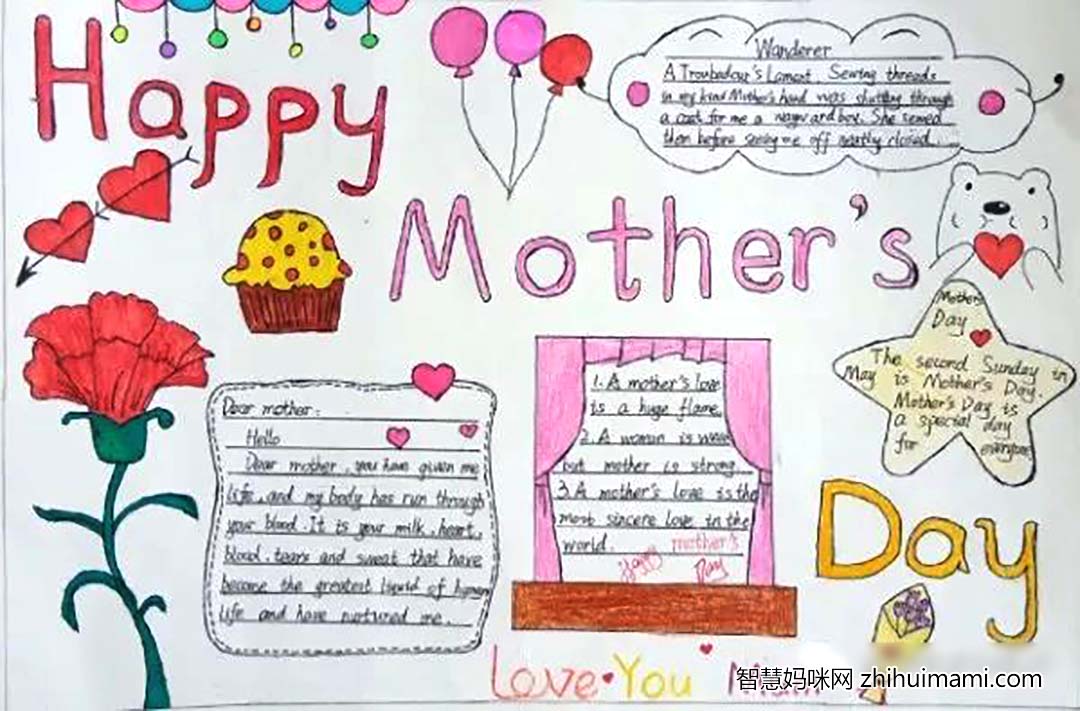 Happy
Wanderer
A Troubadour's Lament. Sewing threads
in my kind Mother's hand was shutting through
a coat for me a wayward boy. She sewed
then before seeing me off neatly closed.
Mother's
Mother's
Day
The second Sunday in
May is Mother's Day.
Mother's Day is
a special day
for everyone
Dear mother:
Hello
Dear mother, you have given me
life, and my body has run through
your blood. It is your milk, heart,
blood, tears and sweat that have
become the greatest liquid of human
life and have nurtured me.
1. A mother's love
is a huge flame.
2. A woman is weak
but mother is strong.
3. A mother's love is the
most sincere love in the
world.
mother's
Day
Day
Love You
智慧妈咪网 zhihuimami.com